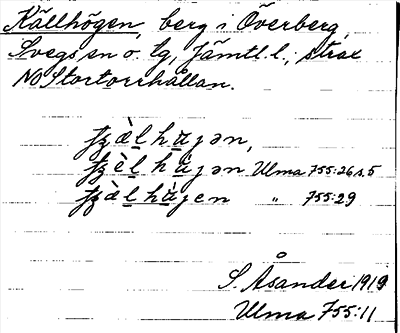 Källhögen, berg i Överberg,
Svegs sn o. tg, Jämtl. l.; strax
NO Stortorrhållan.
ʃʒὲl̲hὰ̲jən,
ʃʒὲl̲hά̲jən Ulma 755:26 s. 5
ʃʒὰl̲hὰ̲jen " 755:29
S. Åsander 1919
Ulma 755:11